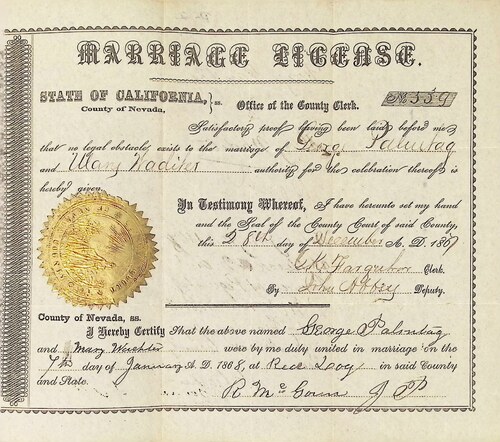 MARRIAGE LICENSE.
STATE OF CALIFORNIA, } ss.
County of Nevada,
Office of the County Clerk.
No 559
Satisfactory proof having been laid before me
that no legal obstacle exists to the marriage of George Palmtag
and Mary authority for the celebration thereof is
hereby given.
In Testimony Whereof, I have hereunto set my hand
and the Seal of the County Court of said County,
this 28th day of December A. D. 1867
Clerk.
By John Deputy.
County of Nevada, ss.
I Hereby Certify That the above named George Palmtag
and Mary were by me duly united in marriage on the
7th day of January A. D. 1868, at Red Dog in said County
and State.
R J P